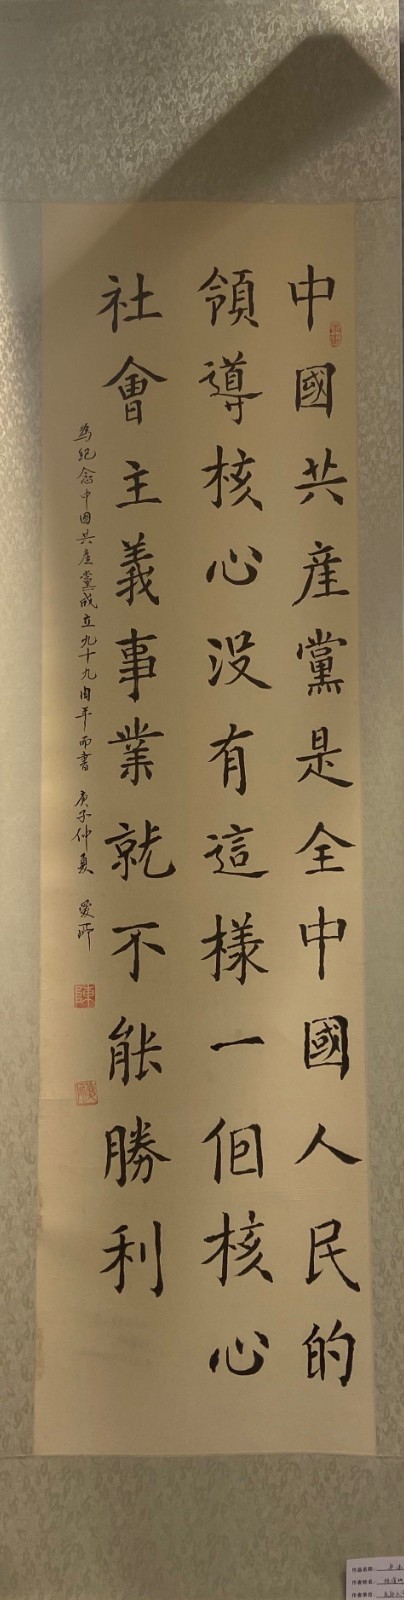 中國共産黨是全中國人民的
領導核心没有這樣一個核心
社會主義事業就不能勝利
為紀念中國共産黨成立九十九周年而書 庚子仲夏 愛師
作品名称:
作者姓名:
作者单位: